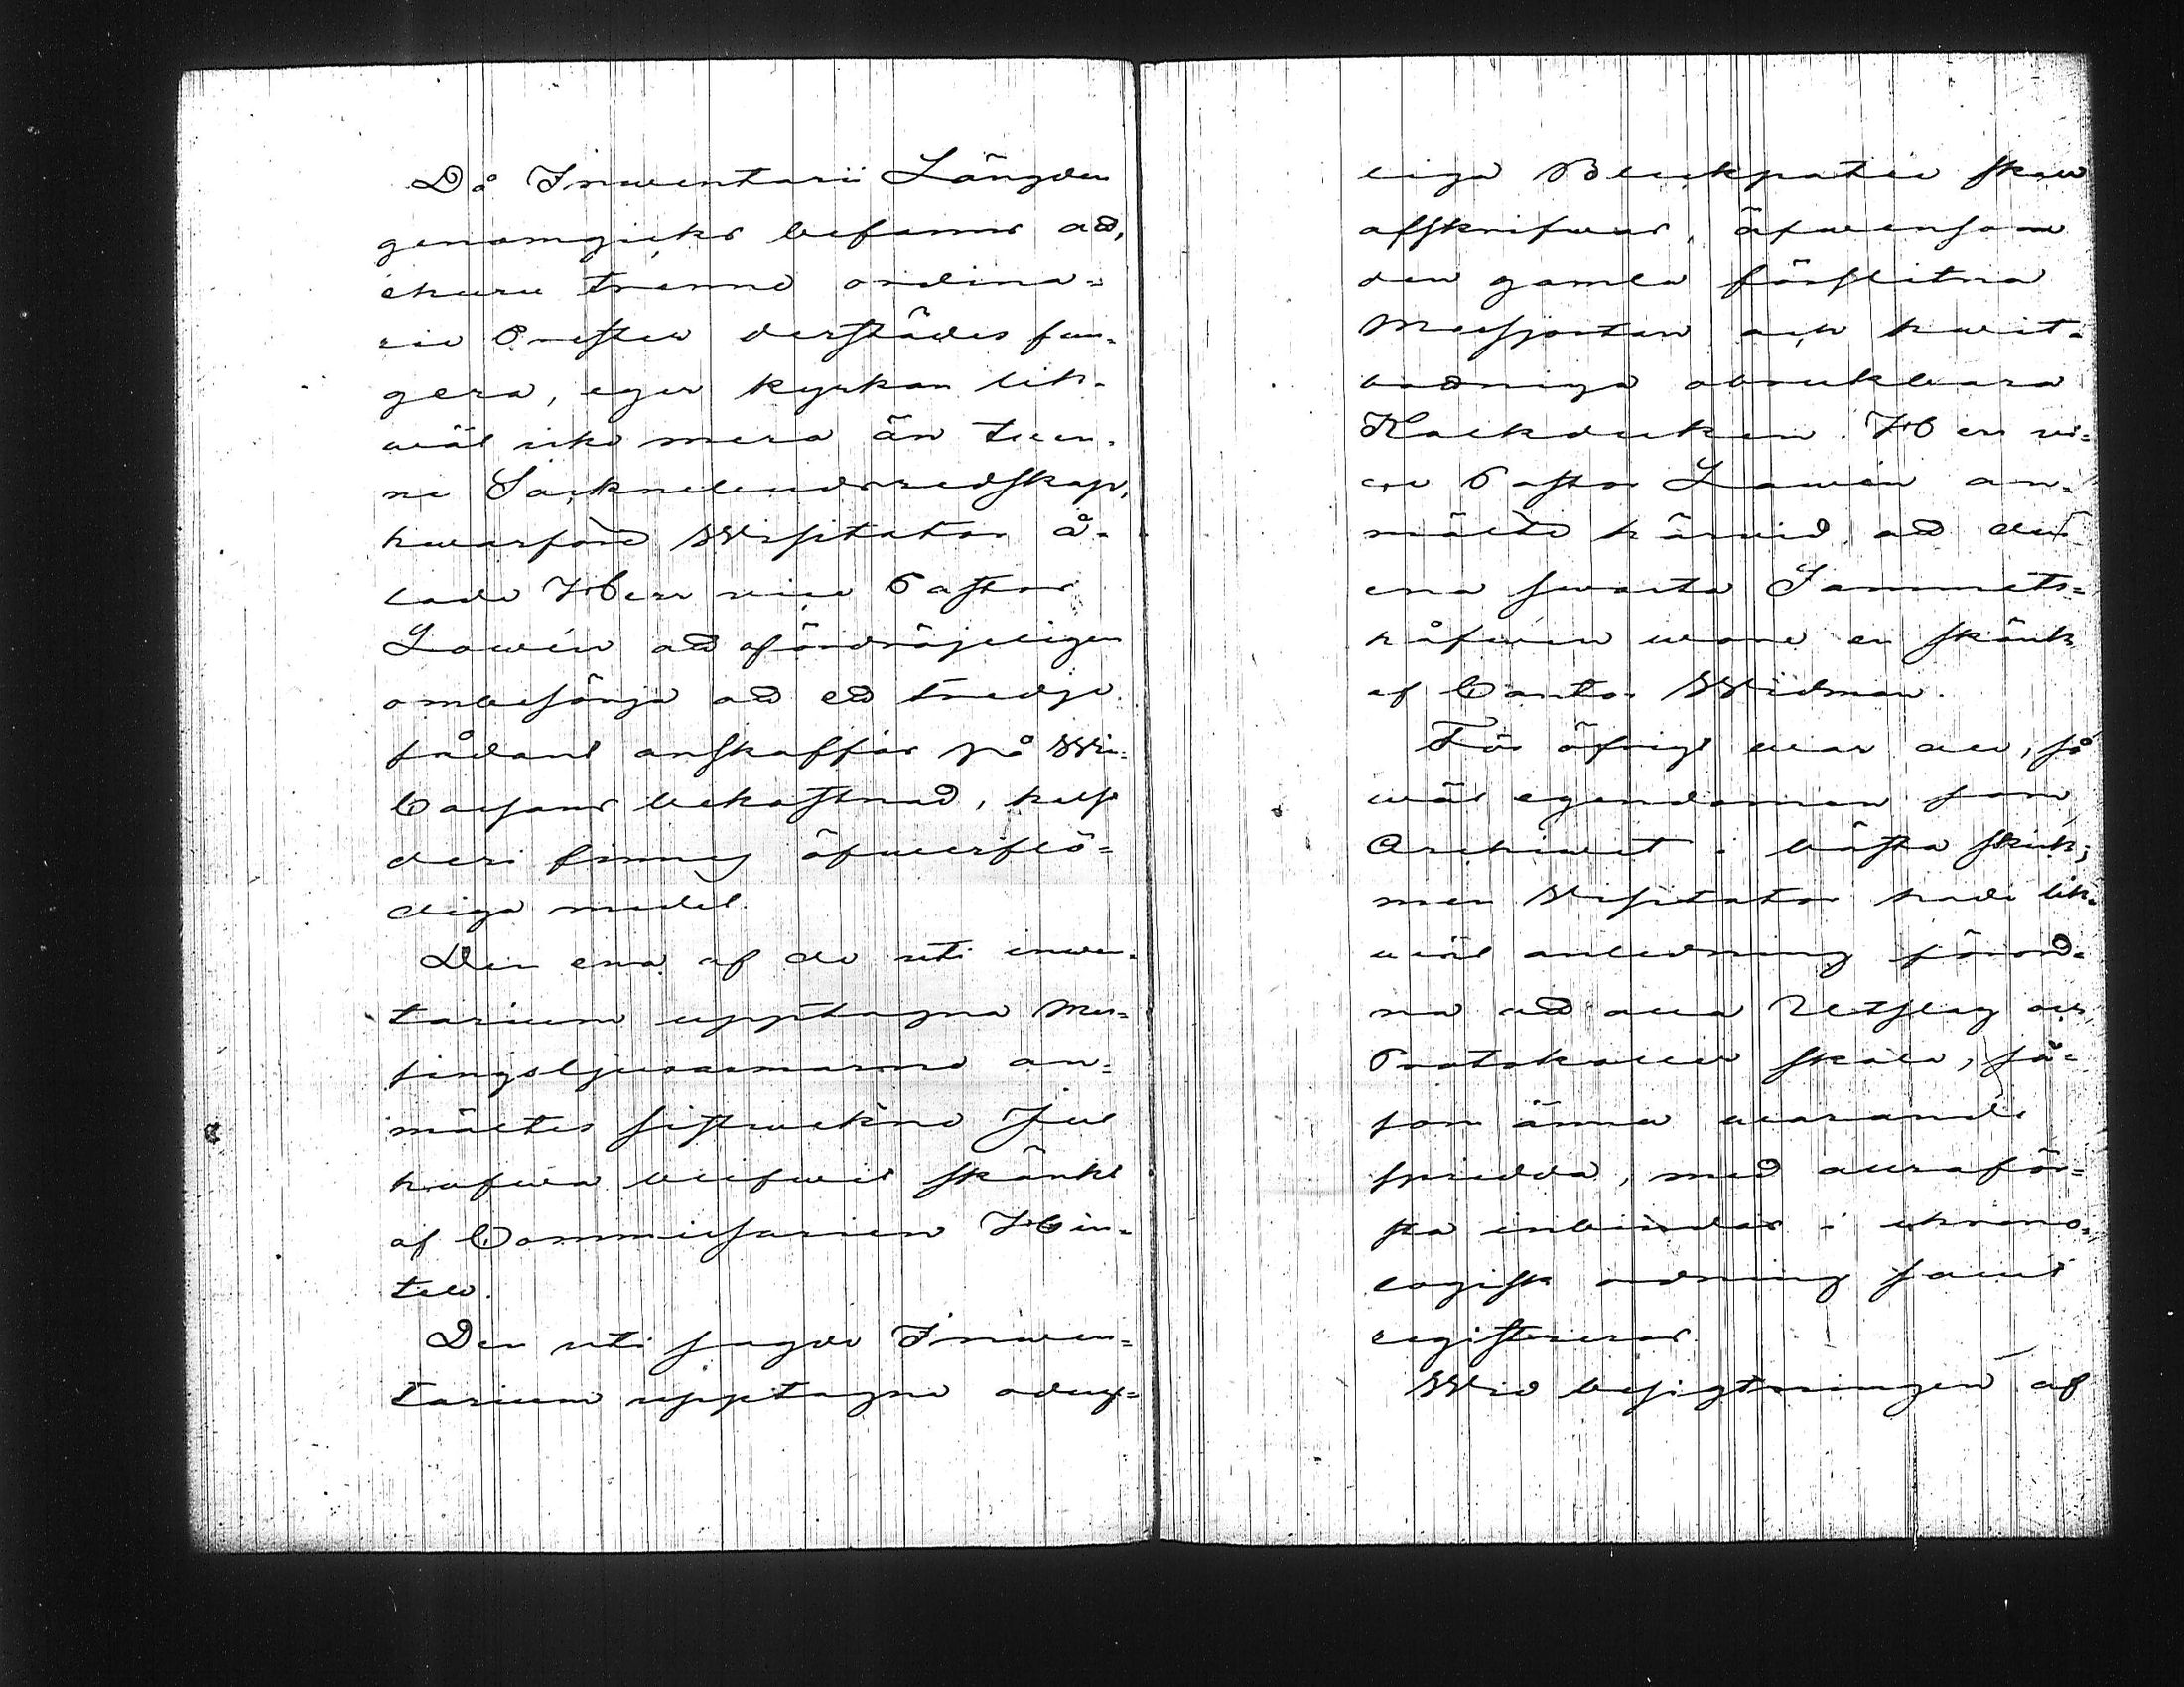 Då Inventarii Längden
genomgicks befanns att,
ehuru trenne ordina=
rie Prester derstädes fun=
gera, eger kyrkan lik=
wäl icke mera än twen=
ne Sockneluds redskap,
hwarföre Wisitator å=
lade Herr vice Pastor
Lowén att ofördröjeligen
ombesörja att ett tredje
sådant anskaffas på Win
Cassans bekostnad, helst
der finnes öfwerflö=
diga medel.
Den ena af de uti inwen=
tarium upptagna Mes=
singsljusarmarne an=
mältes sistwekne Jul
hafwa blifwit skänkt
af Commissarien Hin=
tell.
Den uti sagde Inwen=
tarium upptagne odug=
liga Bleckpatén skall
afskrifwas, äfwensom
den gamla förslitna
Messjortan och hwit=
brokiga obrukbara
Kalkduken. Herr vi=
ce Pastor Lowén an=
mälte härwid, att den
ena swarta Sammets=
håfwen wore en skänk
af Cantor Widman.
För öfrigt war all, så
wäl egendomen som
Archivet i bästa skick;
men Wisitator hade lik=
wäl anledning förord=
na att alla Utslag och
Protokoller skola, så=
som ännu warande
spridda, med allraför=
sta inbindas i chrono=
logisk ordning samt
registreras.
Wid besigtningen af